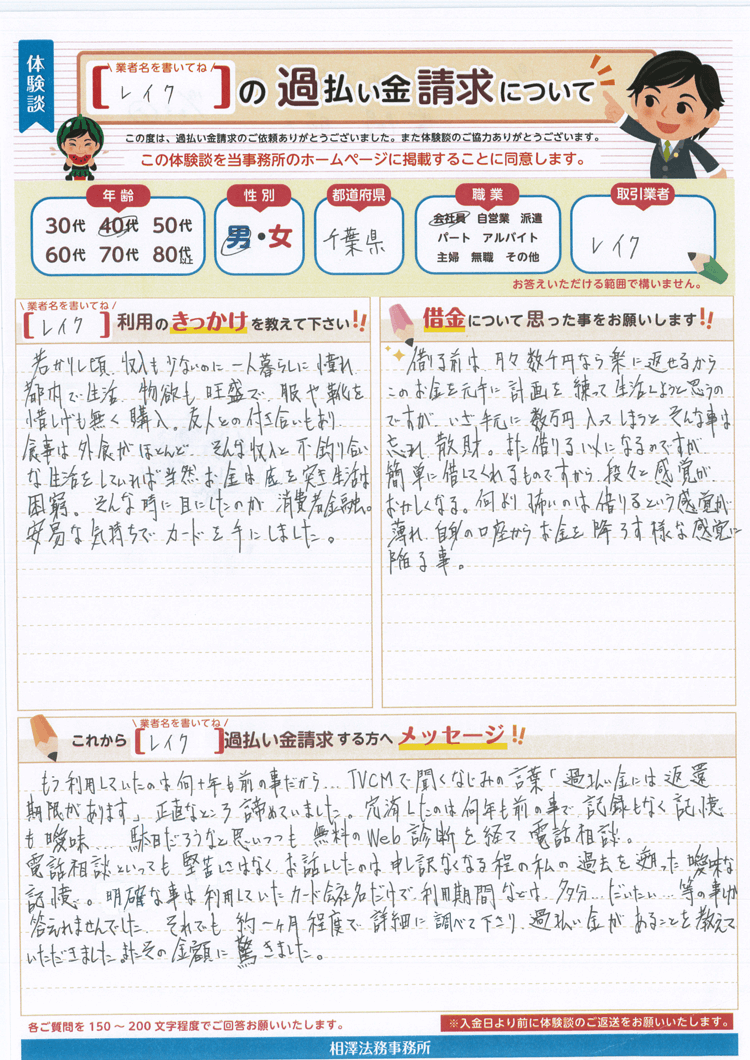 体験談
業者名を書いてね
[レイク]の過払い金請求について
この度は、過払い金請求のご依頼ありがとうございました。また体験談のご協力ありがとうございます。
この体験談を当事務所のホームページに掲載することに同意します。
年齢
30代 40代 50代
60代 70代 80代以上
性別
男・女
都道府県
千葉県
職業
会社員 自営業 派遣
パート アルバイト
主婦 無職 その他
取引業者
レイク
お答えいただける範囲で構いません。
業者名を書いてね
[レイク]利用のきっかけを教えて下さい!!
若かりし頃 収入も少ないのに一人暮らしに憧れ
都内で生活 物欲も旺盛で、服や靴を
惜しげも無く購入。友人との付き合いもあり
食事は外食がほとんど、そんな収入と不釣り合い
な生活をしていれば当然お金は底を突き生活は
困窮。そんな時に目にしたのが消費者金融。
安易な気持ちでカードを手にしました。
借金について思った事をお願いします!!
借りる前は月々数千円なら楽に返せるから
このお金を元手に計画を練って生活しようと思うの
ですが、いざ手元に数万円入ってしまうとそんな事は
忘れ散財。また借りる事になるのですが
簡単に借してくれるものですから段々と感覚が
おかしくなる。何より怖いのは借りるという感覚が
薄れ自身の口座からお金を降ろす様な感覚に
陥る事。
業者名を書いてね
これから[レイク]過払い金請求する方へメッセージ!!
もう利用していたのは何十年も前の事だから… TVCMで聞くなじみの言葉「過払い金には返還
期限があります」正直なところ諦めていました。完済したのは何年も前の事で記録もなく記憶
も曖昧… 駄目だろうなと思いつつも無料のWeb診断を経て電話相談。
電話相談といっても堅苦しさはなくお話ししたのは申し訳なくなる程の私の過去を遡った曖昧な
記憶。明確な事は利用していたカード会社名だけで利用期間などは、多分…だいたい…等の事しか
答えれませんでした。それでも約一ヶ月程度で詳細に調べて下さり、過払い金があることを教えて
いただきました。またその金額に驚きました。
各ご質問を150～200文字程度でご回答お願いいたします。
※入金日より前に体験談のご返送をお願いいたします。
相澤法務事務所